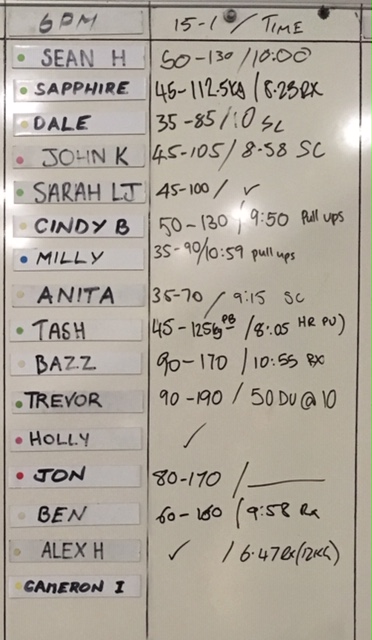 6PM 15-1 / TIME
SEAN H 50-130/10:00
SAPPHIRE 45-112.5kg/8.25RX
DALE 35-85/:0 SC
JOHN K 45-105/8-58 SC
SARAH LJ 45-100/ ✓
CINDY B 50-130/9:50 Pull ups
MILLY 35-90/10:59 pull ups
ANITA 35-70/9:15 SC
TASH 45-125kg PB/8:05 HR PU)
BAZZ 90-170/10:55 RX
TREVOR 90-190/50 DU @ 10
HOLLY ✓
JON 80-170/
BEN 60-160/9:58 Rx
ALEX H ✓ /6.47Rx(12KG)
CAMERON I